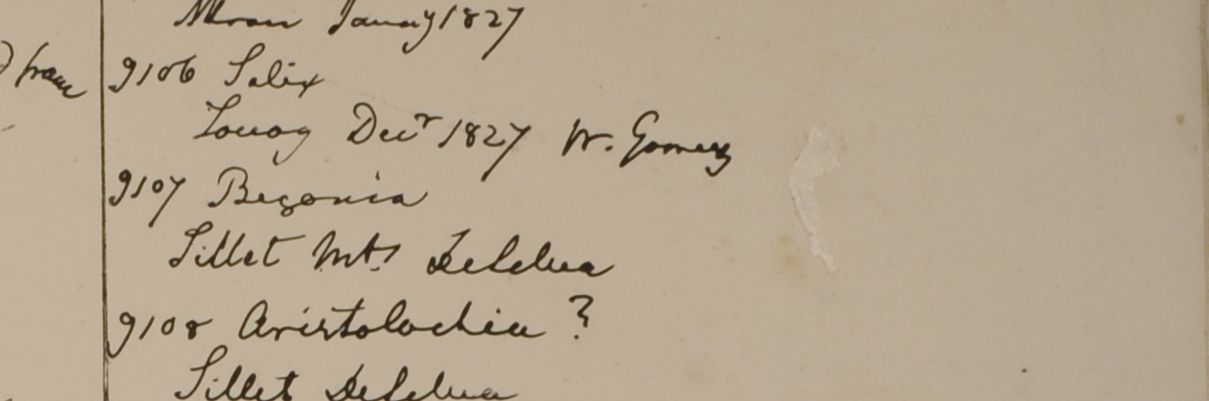 Moran Januay 1827
from
9106 Salix
Decr 1827 W. Gomez
9107 Begonia
Sillet Mts DeSelua
9108 Aristolochia ?
Sillet DeSelua